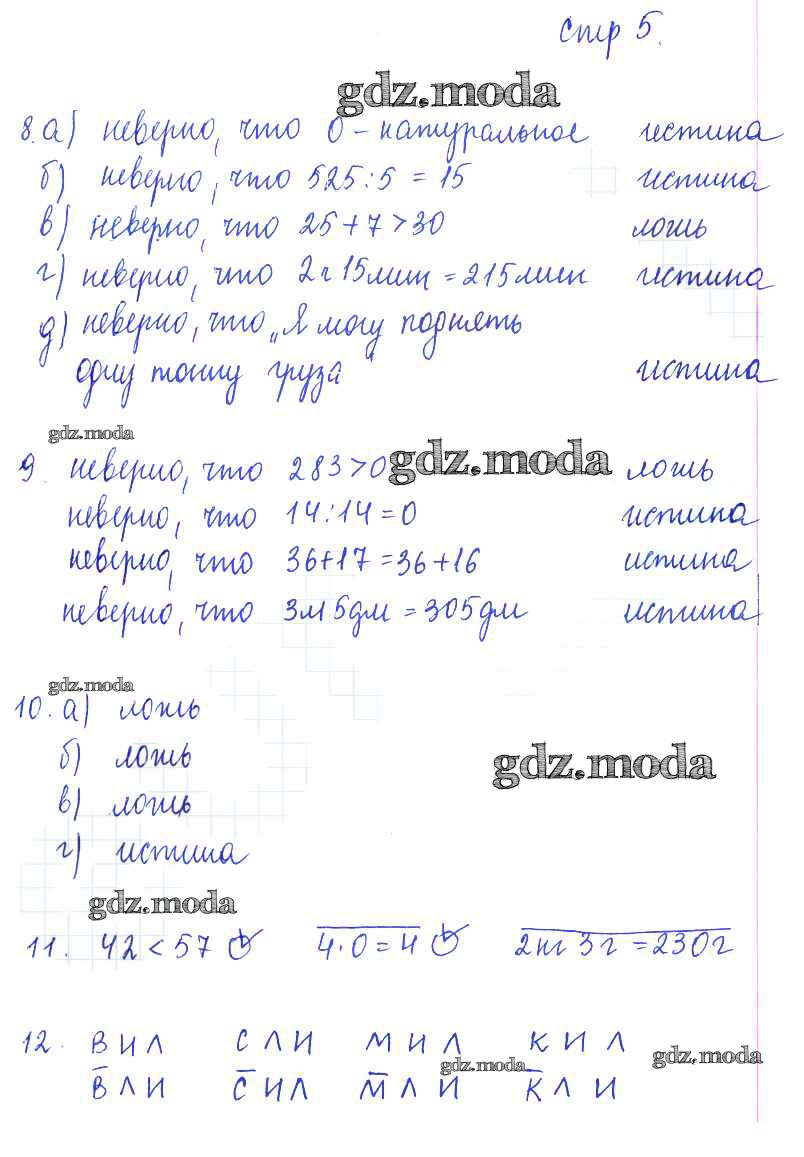 стр 5.
gdz.moda
8. а) неверно, что 0 - натуральное истина
б) неверно, что 525 : 5 = 15 истина
в) неверно, что 25 + 7 > 30 ложь
г) неверно, что 2ч 15мин = 215мин истина
д) неверно, что „Я могу поднять
одну тонну груза" истина
gdz.moda
9. неверно, что 283 > 0 gdz.moda ложь
неверно, что 14 : 14 = 0 истина
неверно, что 36+17 = 36+16 истина
неверно, что 3м 5дм = 305дм истина
gdz.moda
10. а) ложь
б) ложь
gdz.moda
в) ложь
г) истина
gdz.moda
11. 42 < 57 4 · 0 = 4 2кг 3г = 230г
12. В И Л С Л И М И Л К И Л
gdz.moda gdz.moda
В Л И С И Л М Л И К Л И